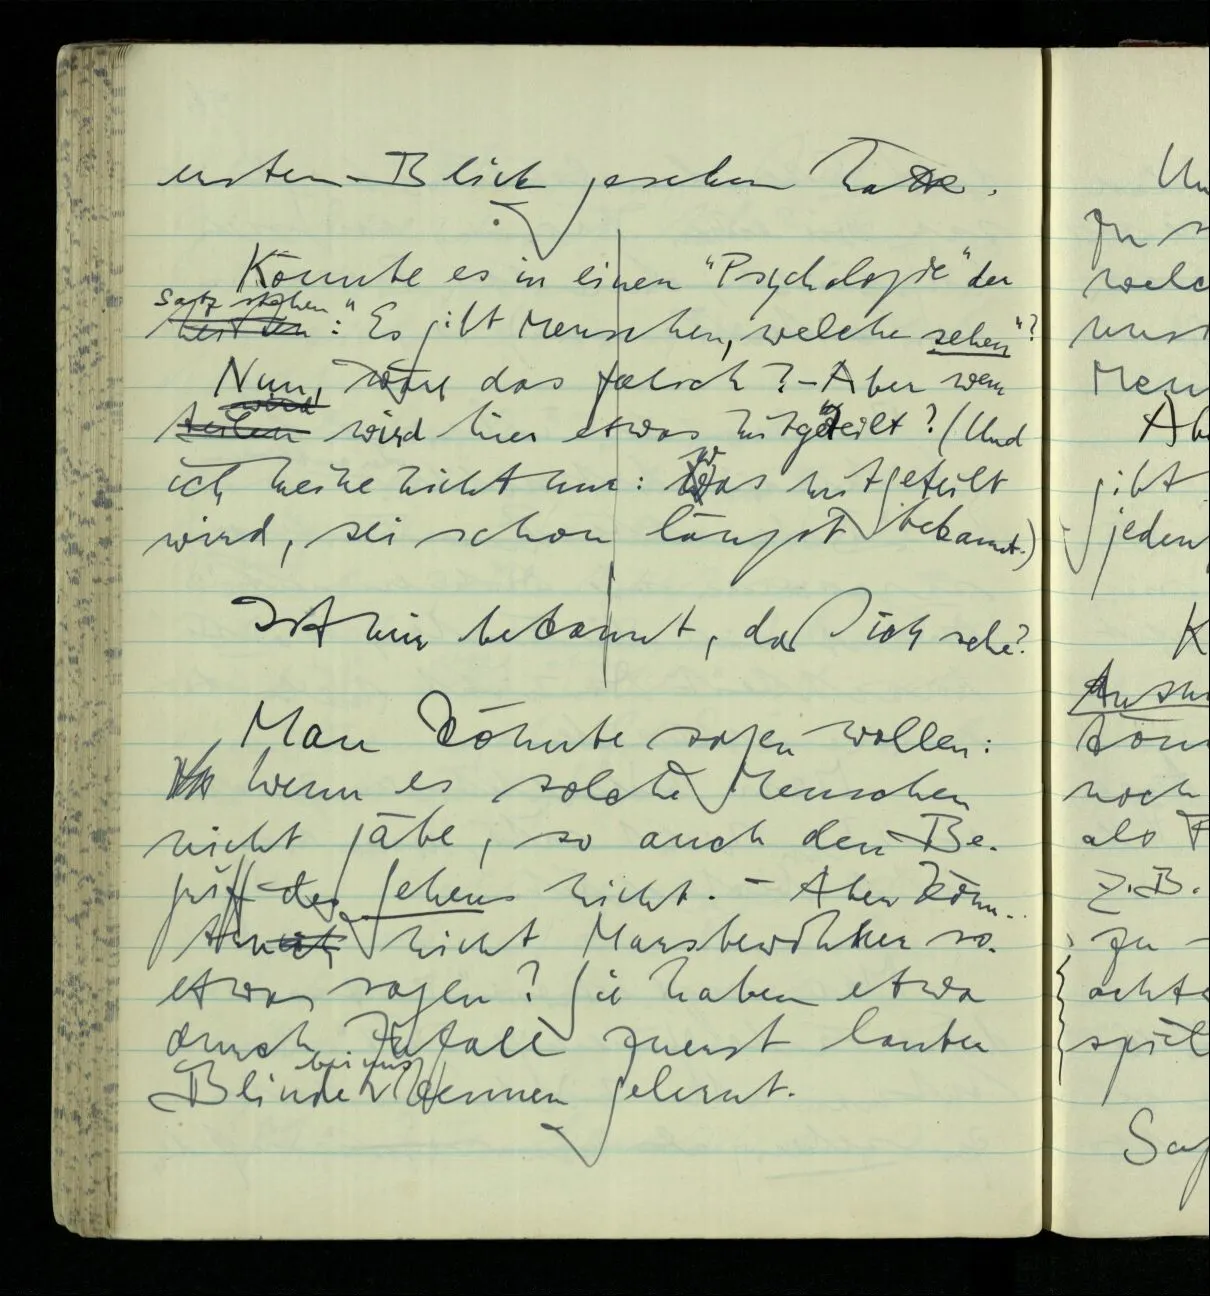 ersten Blick gesehen hatte.
Könnte es in einer "Psychologie" der
Satz stehen
: "Es gibt Menschen, welche sehen"?
Nun, wäre das falsch? – Aber wem
wird
wird hier etwas mitgeteilt? (Und
ich meine nicht nur: was mitgeteilt
wird, sei schon längst bekannt.)
Ist mir bekannt, daß ich sehe?
Man könnte sagen wollen:
wenn es solche Menschen
nicht gäbe, so auch den Be-
griff des Sehens nicht. – Aber könn-
ten nicht Marsbewohner so
etwas sagen? Sie haben etwa
durch Zufall zuerst lauter
bei uns
Blinde kennen gelernt.
Un
zu s
welc
uns
Men
Ab
gibt
jeden
K
könn
noch
als F
Z.B.
zu –
achte
spiel
Sag